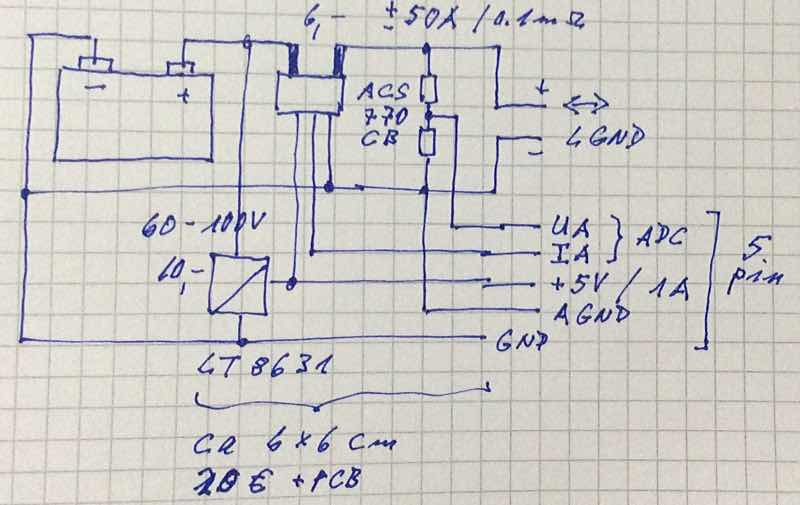 6,- ±50A / 0.1mΩ
- +
ACS
770
CB
+
LGND
-
60-100V
10,-
UA
IA } ADC
+5V / 1A
AGND
GND
5
pin
LT8631
ca 6x6 cm
20€ + PCB